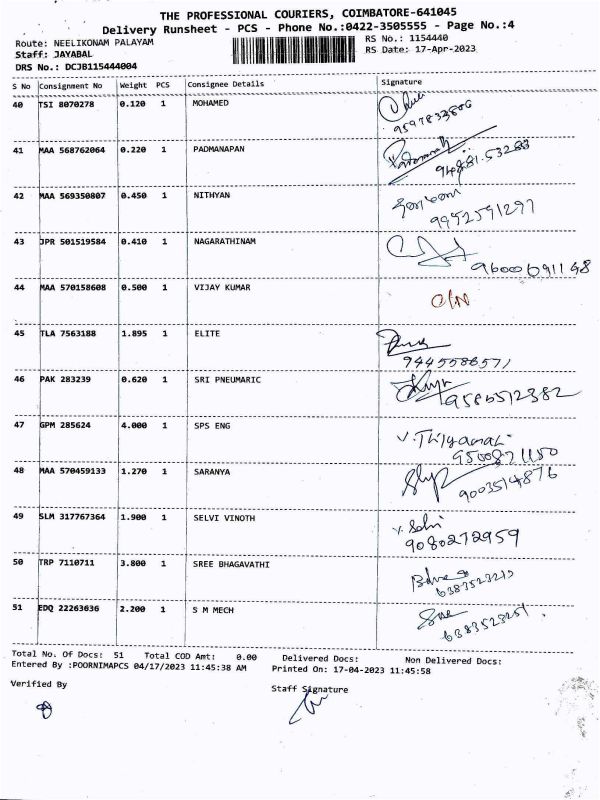 THE PROFESSIONAL COURIERS, COIMBATORE-641045
Delivery Runsheet - PCS - Phone No.:0422-3505555 - Page No.:4
Route: NEELIKONAM PALAYAM RS No.: 1154440
Staff: JAYABAL RS Date: 17-Apr-2023
DRS No.: DCJB115444004
S No Consignment No Weight PCS Consignee Details Signature
40 TSI 8070278 0.120 1 MOHAMED
9597833806
41 MAA 568762064 0.220 1 PADMANAPAN
94881.53283
42 MAA 569350807 0.450 1 NITHYAN
9952591297
43 JPR 501519584 0.410 1 NAGARATHINAM
9600091148
44 MAA 570158608 0.500 1 VIJAY KUMAR
C/N
45 TLA 7563188 1.895 1 ELITE
9445586571
46 PAK 283239 0.620 1 SRI PNEUMARIC
9586512382
47 GPM 285624 4.000 1 SPS ENG
V. Thiyamali
9500871150
48 MAA 570459133 1.270 1 SARANYA
9003514876
49 SLM 317767364 1.900 1 SELVI VINOTH
v. Selvi
9080272959
50 TRP 7110711 3.800 1 SREE BHAGAVATHI
51 EDQ 22263036 2.200 1 S M MECH
Total No. Of Docs: 51 Total COD Amt: 0.00 Delivered Docs: Non Delivered Docs:
Entered By :POORNIMAPCS 04/17/2023 11:45:38 AM Printed On: 17-04-2023 11:45:58
Verified By Staff Signature